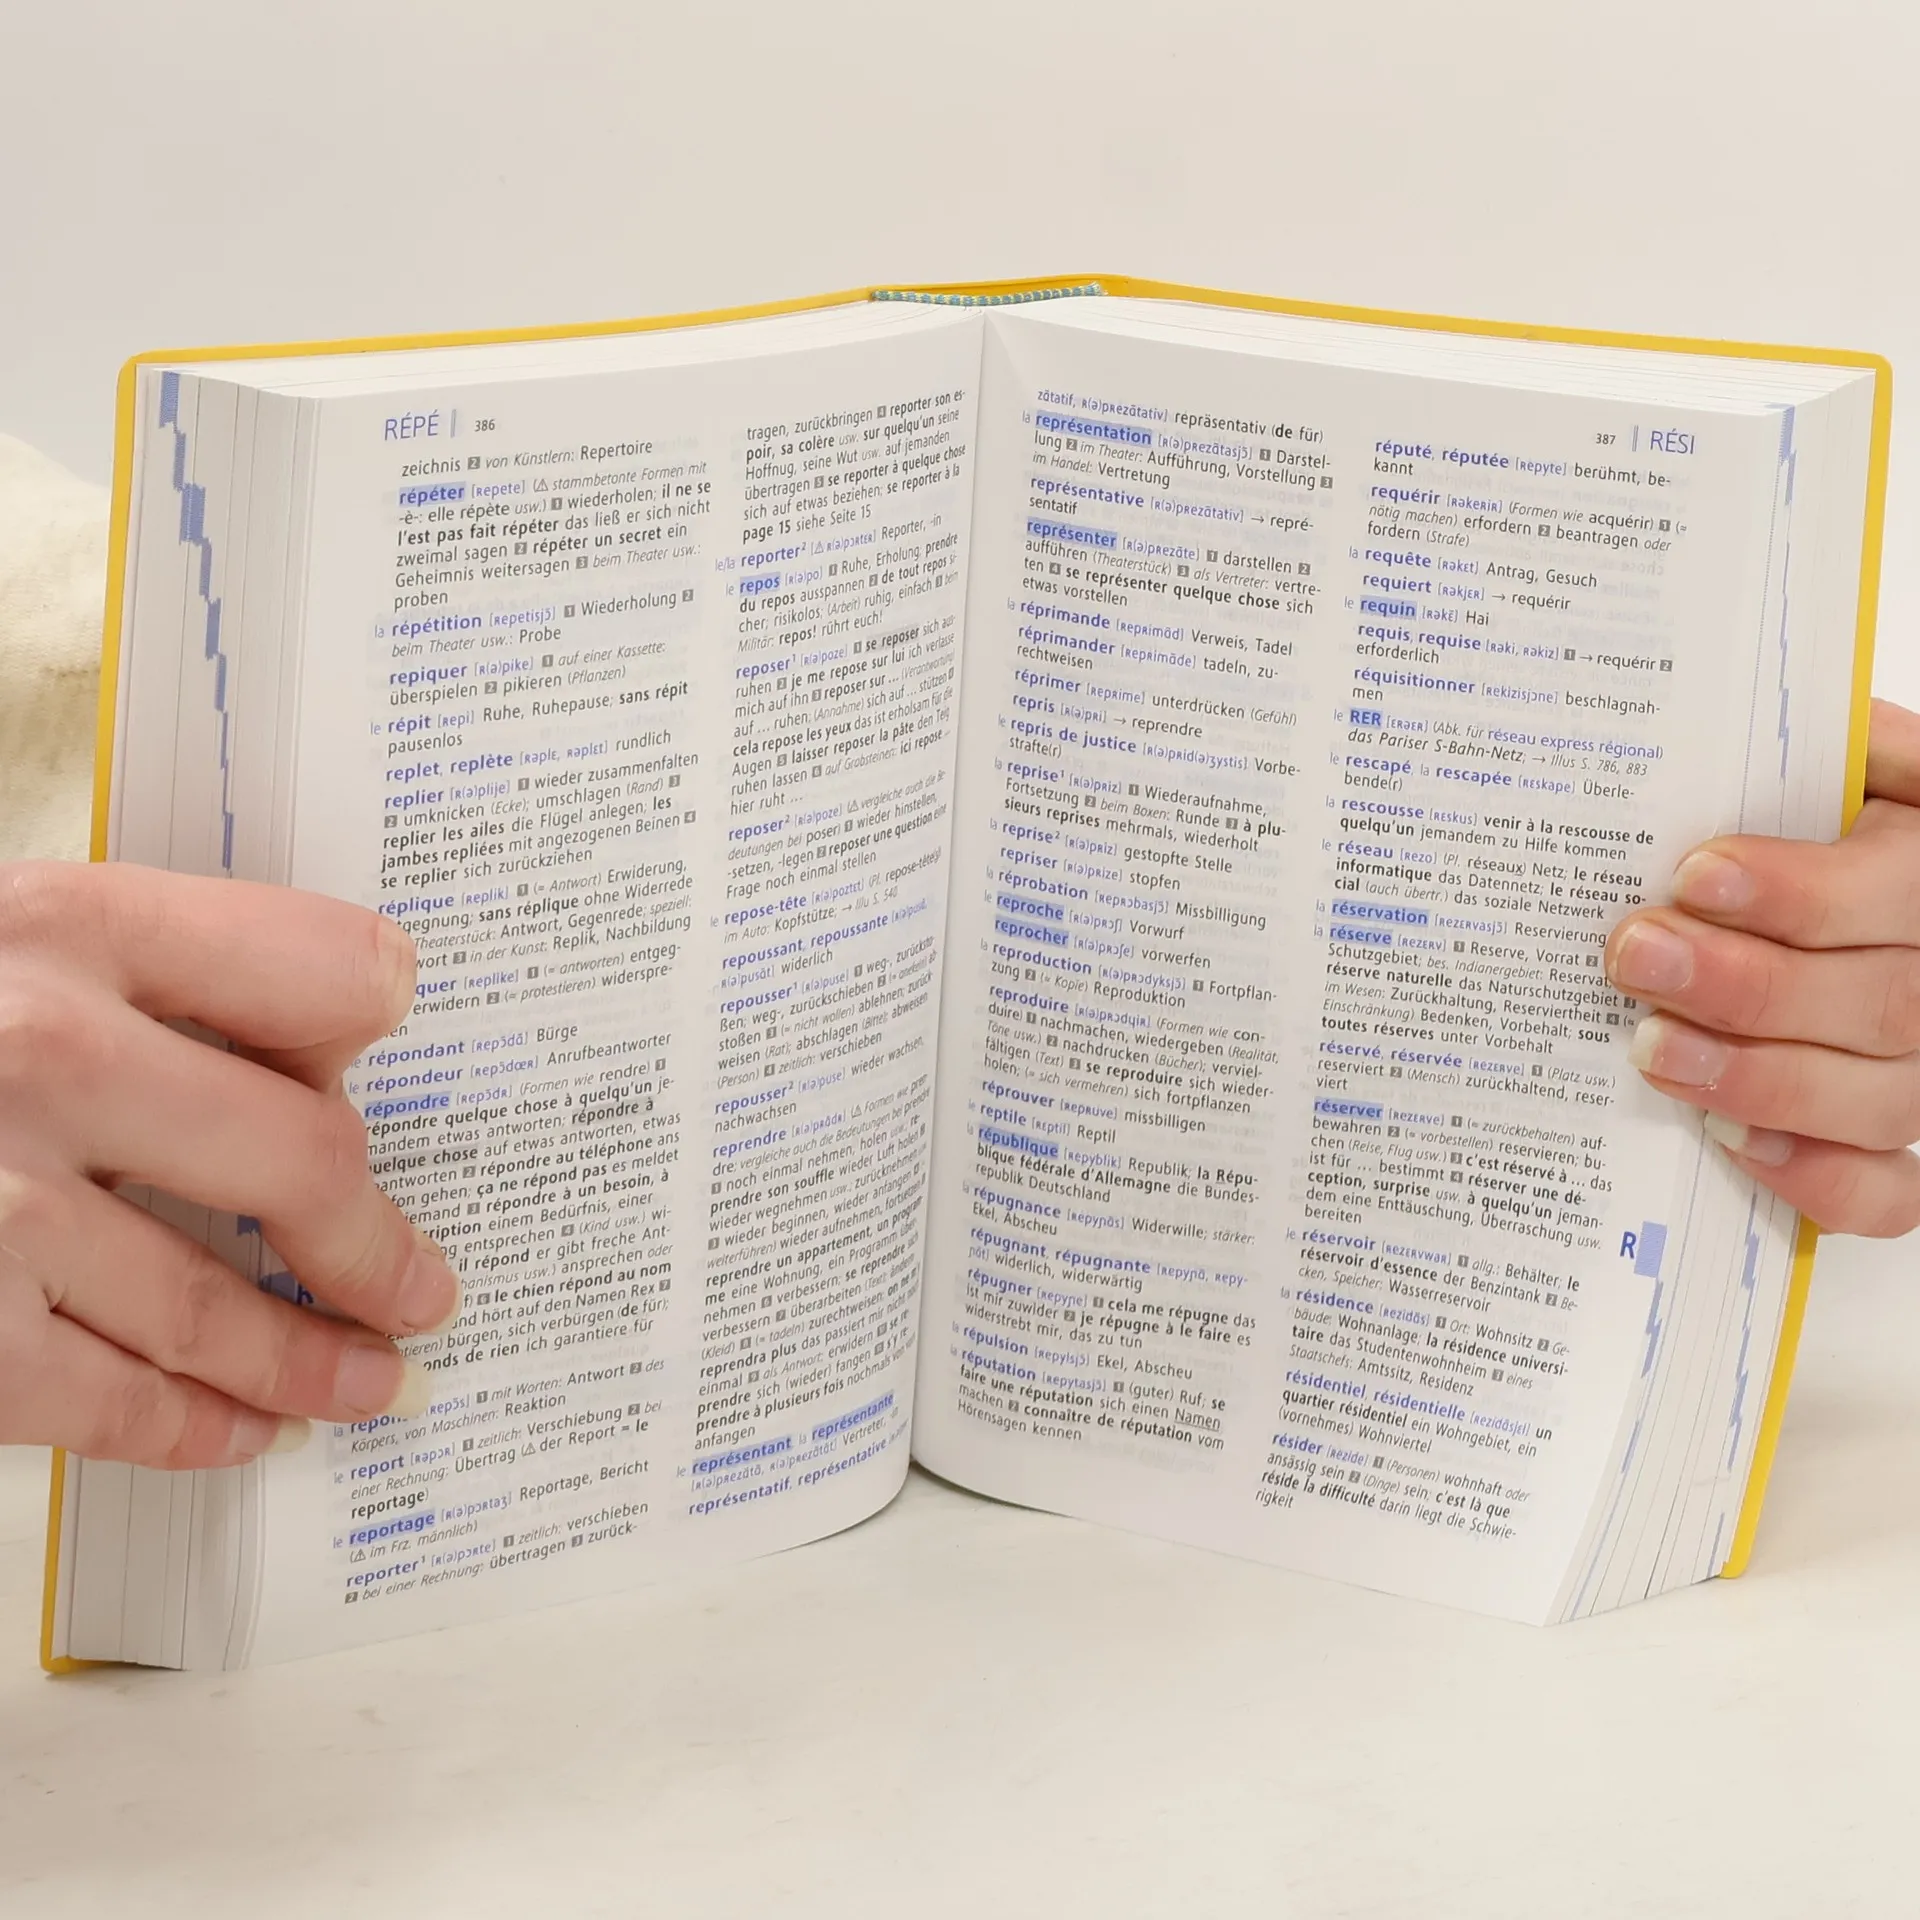 RÉPÉ 386
zeichnis 2 von Künstlern: Repertoire
répéter [ʀepete] (⚠ stammbetonte Formen mit
-è-: elle répète usw.) 1 wiederholen; il ne se
l'est pas fait répéter das ließ er sich nicht
zweimal sagen 2 répéter un secret ein
Geheimnis weitersagen 3 beim Theater usw.:
proben
la répétition [ʀepetisjɔ̃] 1 Wiederholung 2
beim Theater usw.: Probe
repiquer [ʀ(ə)pike] 1 auf einer Kassette:
überspielen 2 pikieren (Pflanzen)
le répit [ʀepi] Ruhe, Ruhepause; sans répit
pausenlos
replet, replète [ʀəplɛ, ʀəplɛt] rundlich
replier [ʀ(ə)plije] 1 wieder zusammenfalten
2 umknicken (Ecke); umschlagen (Rand) 3
replier les ailes die Flügel anlegen; les
jambes repliées mit angezogenen Beinen 4
se replier sich zurückziehen
réplique [ʀeplik] 1 (= Antwort) Erwiderung,
tgegnung; sans réplique ohne Widerrede
Theaterstück: Antwort, Gegenrede; speziell:
wort 3 in der Kunst: Replik, Nachbildung
quer [ʀeplike] 1 (= antworten) entgeg-
erwidern 2 (= protestieren) widerspre-
en
répondant [ʀepɔ̃dɑ̃] Bürge
le répondeur [ʀepɔ̃dœʀ] Anrufbeantworter
répondre [ʀepɔ̃dʀ] (Formen wie rendre) 1
répondre quelque chose à quelqu'un je-
mandem etwas antworten; répondre à
quelque chose auf etwas antworten, etwas
antworten 2 répondre au téléphone ans
fon gehen; ça ne répond pas es meldet
iemand 3 répondre à un besoin, à
cription einem Bedürfnis, einer
ng entsprechen 4 (Kind usw.) wi-
il répond er gibt freche Ant-
hanismus usw.) ansprechen oder
f) 6 le chien répond au nom
und hört auf den Namen Rex 7
tieren) bürgen, sich verbürgen (de für);
onds de rien ich garantiere für
la répon [ʀepɔ̃s] 1 mit Worten: Antwort 2 des
Körpers, von Maschinen: Reaktion
le report [ʀəpɔʀ] 1 zeitlich: Verschiebung 2 bei
einer Rechnung: Übertrag (⚠ der Report = le
reportage)
le reportage [ʀ(ə)pɔʀtaʒ] Reportage, Bericht
(⚠ im Frz. männlich)
reporter¹ [ʀ(ə)pɔʀte] 1 zeitlich: verschieben
2 bei einer Rechnung: übertragen 3 zurück-
tragen, zurückbringen 4 reporter son es-
poir, sa colère usw. sur quelqu'un seine
Hoffnung, seine Wut usw. auf jemanden
übertragen 5 se reporter à quelque chose
sich auf etwas beziehen; se reporter à la
page 15 siehe Seite 15
le/la reporter² [⚠ ʀ(ə)pɔʀtɛʀ] Reporter, -in
le repos [ʀ(ə)po] 1 Ruhe, Erholung; prendre
du repos ausspannen 2 de tout repos si-
cher; risikolos; (Arbeit) ruhig, einfach 3 beim
Militär: repos! rührt euch!
reposer¹ [ʀ(ə)poze] 1 se reposer sich aus-
ruhen 2 je me repose sur lui ich verlasse
mich auf ihn 3 reposer sur ... (Verantwortung)
auf ... ruhen; (Annahme) sich auf ... stützen 4
cela repose les yeux das ist erholsam für die
Augen 5 laisser reposer la pâte den Teig
ruhen lassen 6 auf Grabsteinen: ici repose ...
hier ruht ...
reposer² [ʀ(ə)poze] (⚠ vergleiche auch die Be-
deutungen bei poser) 1 wieder hinstellen,
-setzen, -legen 2 reposer une question eine
Frage noch einmal stellen
le repose-tête [ʀ(ə)poztɛt] (Pl. repose-tête(s))
im Auto: Kopfstütze; → Illu S. 540
repoussant, repoussante [ʀ(ə)pusɑ̃,
ʀ(ə)pusɑ̃t] widerlich
repousser¹ [ʀ(ə)puse] 1 weg-, zurücksto-
ßen; weg-, zurückschieben 2 (= anekeln) ab-
stoßen 3 (= nicht wollen) ablehnen; zurück-
weisen (Rat); abschlagen (Bitte); abweisen
(Person) 4 zeitlich: verschieben
repousser² [ʀ(ə)puse] wieder wachsen,
nachwachsen
reprendre [ʀ(ə)pʀɑ̃dʀ] (⚠ Formen wie pren-
dre; vergleiche auch die Bedeutungen bei prendre)
1 noch einmal nehmen, holen usw.; re-
prendre son souffle wieder Luft holen 2
wieder wegnehmen usw.; zurücknehmen
3 wieder beginnen, wieder anfangen
weiterführen) wieder aufnehmen, fortsetzen
reprendre un appartement, un program
me eine Wohnung, ein Programm über-
nehmen 6 verbessern; se reprendre sich
verbessern 7 überarbeiten (Text); ändern
(Kleid) 8 (= tadeln) zurechtweisen; on ne m'y
reprendra plus das passiert mir nicht noch
einmal 9 als Antwort: erwidern 10 se re-
prendre sich (wieder) fangen 11 s'y re-
prendre à plusieurs fois nochmals von vorn
anfangen
le représentant, la représentante
[ʀ(ə)pʀezɑ̃tɑ̃, ʀ(ə)pʀezɑ̃tɑ̃t] Vertreter, -in
représentatif, représentative
387 RÉSI
zɑ̃tatif, ʀ(ə)pʀezɑ̃tativ] repräsentativ (de für)
la représentation [ʀ(ə)pʀezɑ̃tasjɔ̃] 1 Darstel-
lung 2 im Theater: Aufführung, Vorstellung 3
im Handel: Vertretung
représentative [ʀ(ə)pʀezɑ̃tativ] → repré-
sentatif
représenter [ʀ(ə)pʀezɑ̃te] 1 darstellen 2
aufführen (Theaterstück) 3 als Vertreter: vertre-
ten 4 se représenter quelque chose sich
etwas vorstellen
la réprimande [ʀepʀimɑ̃d] Verweis, Tadel
réprimander [ʀepʀimɑ̃de] tadeln, zu-
rechtweisen
réprimer [ʀepʀime] unterdrücken (Gefühl)
repris [ʀ(ə)pʀi] → reprendre
le repris de justice [ʀ(ə)pʀid(ə)ʒystis] Vorbe-
strafte(r)
la reprise¹ [ʀ(ə)pʀiz] 1 Wiederaufnahme,
Fortsetzung 2 beim Boxen: Runde 3 à plu-
sieurs reprises mehrmals, wiederholt
la reprise² [ʀ(ə)pʀiz] gestopfte Stelle
repriser [ʀ(ə)pʀize] stopfen
la réprobation [ʀepʀɔbasjɔ̃] Missbilligung
le reproche [ʀ(ə)pʀɔʃ] Vorwurf
reprocher [ʀ(ə)pʀɔʃe] vorwerfen
la reproduction [ʀ(ə)pʀɔdyksjɔ̃] 1 Fortpflan-
zung 2 (= Kopie) Reproduktion
reproduire [ʀ(ə)pʀɔdɥiʀ] (Formen wie con-
duire) 1 nachmachen, wiedergeben (Realität,
Töne usw.) 2 nachdrucken (Bücher); verviel-
fältigen (Text) 3 se reproduire sich wieder-
holen; (= sich vermehren) sich fortpflanzen
réprouver [ʀepʀuve] missbilligen
le reptile [ʀɛptil] Reptil
la république [ʀepyblik] Republik; la Répu-
blique fédérale d'Allemagne die Bundes-
republik Deutschland
la répugnance [ʀepyɲɑ̃s] Widerwille; stärker:
Ekel, Abscheu
répugnant, répugnante [ʀepyɲɑ̃, ʀepy-
ɲɑ̃t] widerlich, widerwärtig
répugner [ʀepyɲe] 1 cela me répugne das
ist mir zuwider 2 je répugne à le faire es
widerstrebt mir, das zu tun
la répulsion [ʀepylsjɔ̃] Ekel, Abscheu
la réputation [ʀepytasjɔ̃] 1 (guter) Ruf; se
faire une réputation sich einen Namen
machen 2 connaître de réputation vom
Hörensagen kennen
réputé, réputée [ʀepyte] berühmt, be-
kannt
requérir [ʀəkeʀiʀ] (Formen wie acquérir) 1 (=
nötig machen) erfordern 2 beantragen oder
fordern (Strafe)
la requête [ʀəkɛt] Antrag, Gesuch
requiert [ʀəkjɛʀ] → requérir
le requin [ʀəkɛ̃] Hai
requis, requise [ʀəki, ʀəkiz] 1 → requérir 2
erforderlich
réquisitionner [ʀekizisjɔne] beschlagnah-
men
le RER [ɛʀəɛʀ] (Abk. für réseau express régional)
das Pariser S-Bahn-Netz; → Illus S. 786, 883
le rescapé, la rescapée [ʀɛskape] Überle-
bende(r)
la rescousse [ʀɛskus] venir à la rescousse de
quelqu'un jemandem zu Hilfe kommen
le réseau [ʀezo] (Pl. réseaux) Netz; le réseau
informatique das Datennetz; le réseau so-
cial (auch übertr.) das soziale Netzwerk
la réservation [ʀezɛʀvasjɔ̃] Reservierung
la réserve [ʀezɛʀv] 1 Reserve, Vorrat 2
Schutzgebiet; bes. Indianergebiet: Reservat;
réserve naturelle das Naturschutzgebiet 3
im Wesen: Zurückhaltung, Reserviertheit 4 (=
Einschränkung) Bedenken, Vorbehalt; sous
toutes réserves unter Vorbehalt
réservé, réservée [ʀezɛʀve] 1 (Platz usw.)
reserviert 2 (Mensch) zurückhaltend, reser-
viert
réserver [ʀezɛʀve] 1 (= zurückbehalten) auf-
bewahren 2 (= vorbestellen) reservieren; bu-
chen (Reise, Flug usw.) 3 c'est réservé à ... das
ist für ... bestimmt 4 réserver une dé-
ception, surprise usw. à quelqu'un jeman-
dem eine Enttäuschung, Überraschung usw.
bereiten
le réservoir [ʀezɛʀvwaʀ] 1 allg.: Behälter; le
réservoir d'essence der Benzintank 2 Be-
cken, Speicher: Wasserreservoir
la résidence [ʀezidɑ̃s] 1 Ort: Wohnsitz 2 Ge-
bäude: Wohnanlage; la résidence universi-
taire das Studentenwohnheim 3 eines
Staatschefs: Amtssitz, Residenz
résidentiel, résidentielle [ʀezidɑ̃sjɛl] un
quartier résidentiel ein Wohngebiet, ein
(vornehmes) Wohnviertel
résider [ʀezide] 1 (Personen) wohnhaft oder
ansässig sein 2 (Dinge) sein; c'est là que
réside la difficulté darin liegt die Schwie-
rigkeit
R